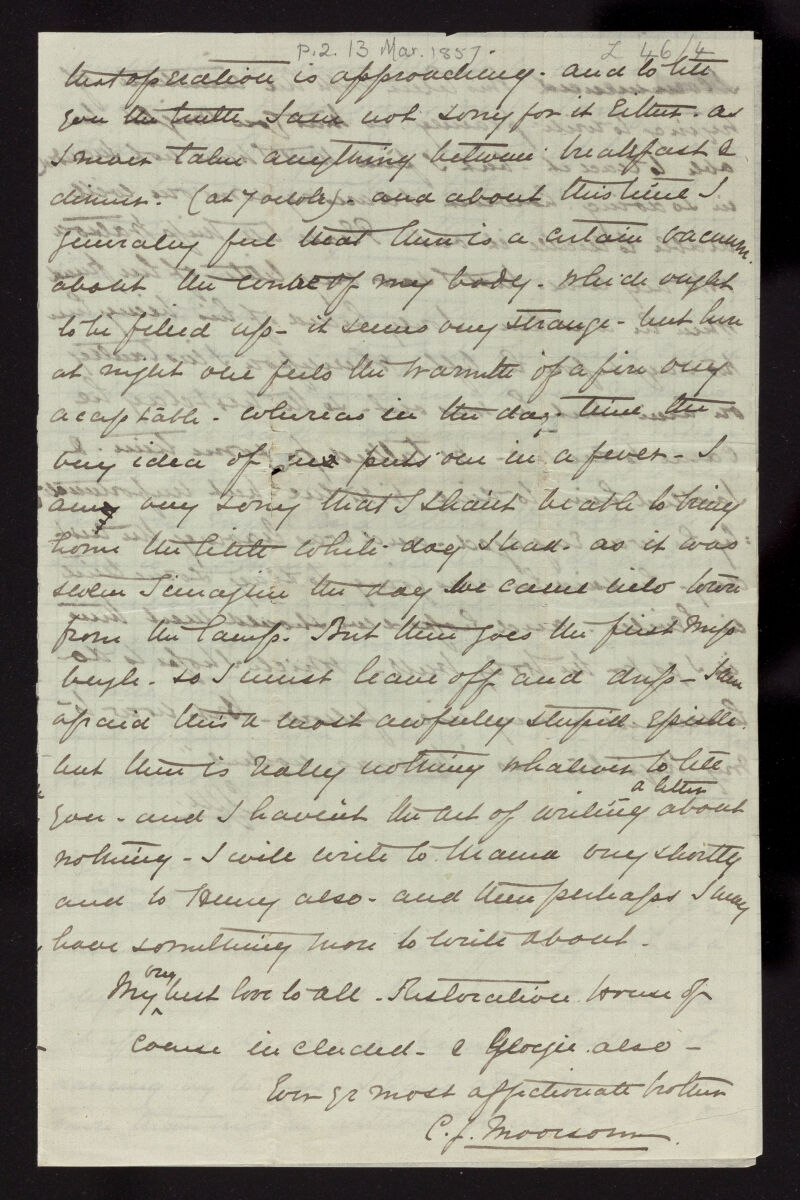 p.2. 13 Mar. 1857. L 46/4
that operation is approaching - and to tell
you the truth I am not sorry for it Either - as
I never take anything between breakfast &
dinner. (at 7 oclock). and about this time I
generally feel that there is a certain vacuum
about the centre of my body - which ought
to be filled up - it seems very strange - but here
at night one feels the warmth of a fire very
acceptable - whereas in the day-time the
very idea of puts one in a fever - I
am very sorry that I shan't be able to bring
home the little white dog I had - as it was
stolen I imagine the day we came into town
from the Camp. But there goes the first Mess
bugle - so I must leave off and dress - I am
afraid this a most awfully stupid Epistle
but there is really nothing whatever to tell
you - and I haven't the art of writing a letter about
nothing - I will write to Mama very shortly
and to Henry also - and then perhaps I may
have something more to write about -
My very best love to all - Restoration House of
course included - & also -
Ever yr most affectionate brother
C. J. Moorsom.